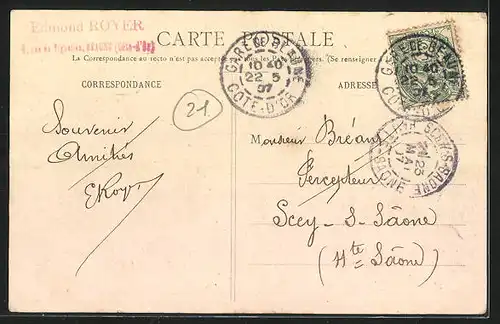 Edmond ROYER
CARTE POSTALE
La Correspondance au recto n'est pas acceptée
(Se renseigner
CORRESPONDANCE
ADRESSE
GARE DE BEAUNE
10 40
22 5
07
CÔTE-D'OR
GARE DE BEAUNE
10 40
CÔTE-D'OR
21
Souvenir
Amitiés
ERoyer
Monsieur Bréant
Percepteur
Scey-S-Saône
(Hte Saône)
SCEY-S-SAONE
23
MAI
07